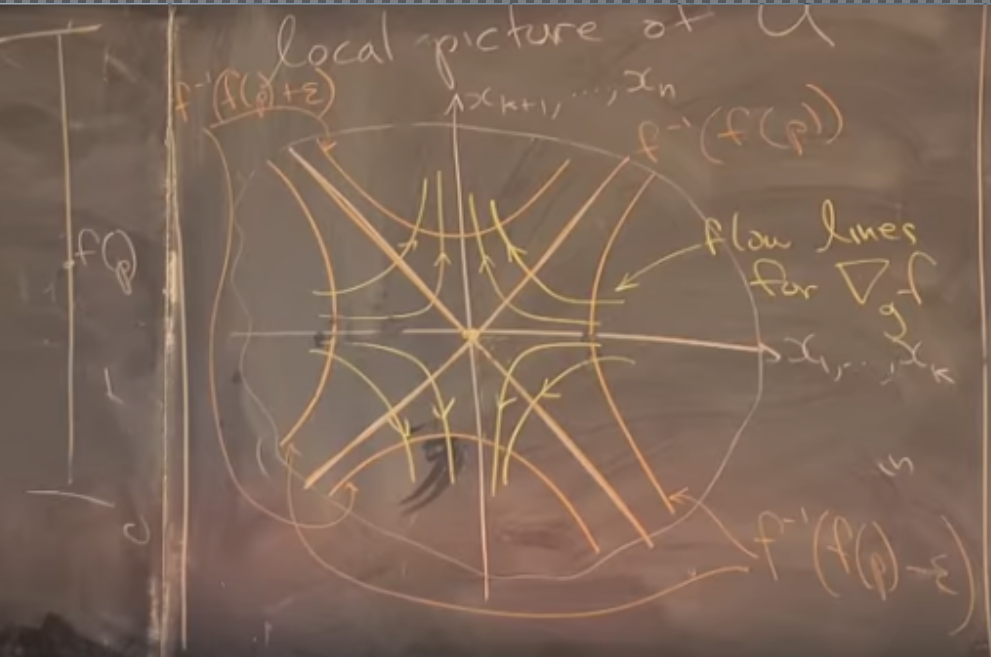 local picture of U
f⁻¹(f(p)+ε)
x_{k+1}, ..., x_n
f⁻¹(f(p))
f(p)
flow lines
for ∇_g f
x_1, ..., x_k
in
f⁻¹(f(p)-ε)